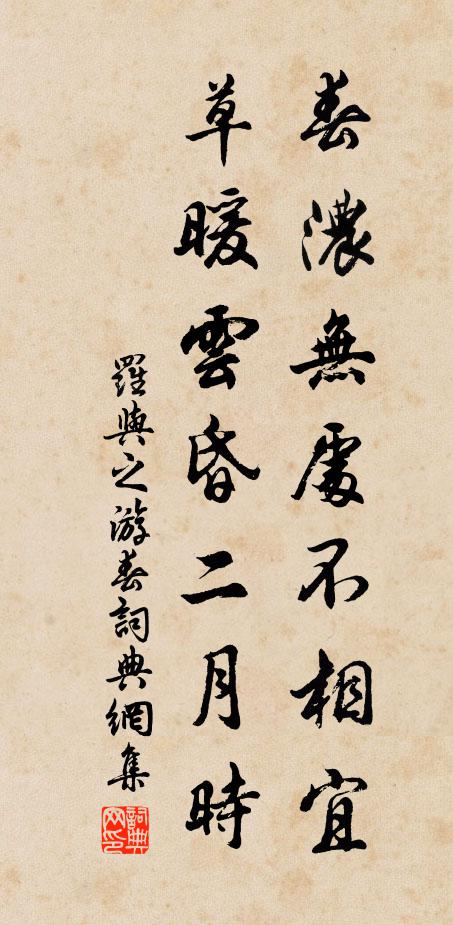 春濃無處不相宜
草暖雲昏二月時
羅與之游春詞典網集
詞典
网印